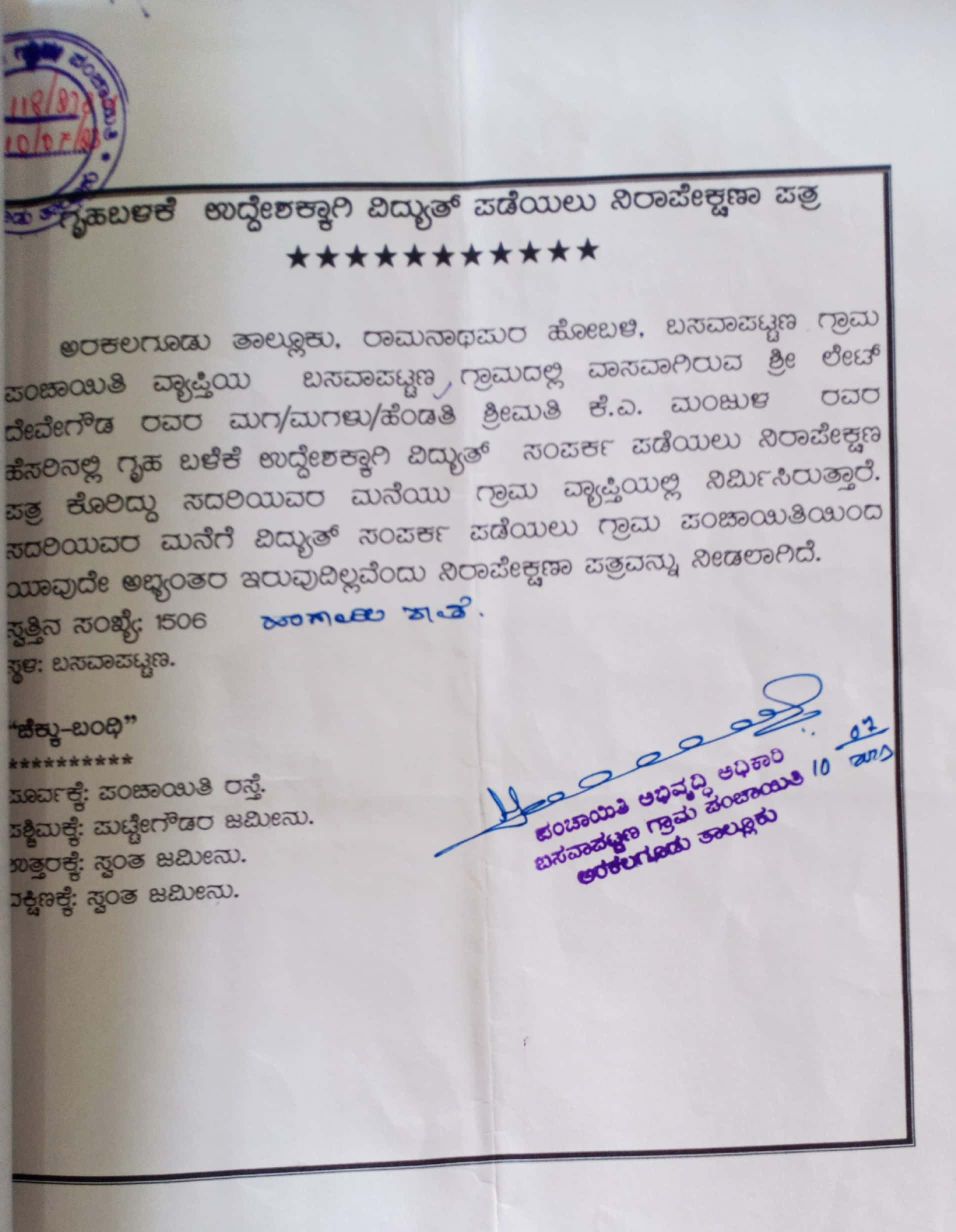 ಪಂಚಾಯಿತಿ
118/
10/07/23
ಗೃಹಬಳಕೆ ಉದ್ದೇಶಕ್ಕಾಗಿ ವಿದ್ಯುತ್ ಪಡೆಯಲು ನಿರಾಪೇಕ್ಷಣಾ ಪತ್ರ
★★★★★★★★★★★
ಅರಕಲಗೂಡು ತಾಲ್ಲೂಕು, ರಾಮನಾಥಪುರ ಹೋಬಳಿ, ಬಸವಾಪಟ್ಟಣ ಗ್ರಾಮ
ಪಂಚಾಯಿತಿ ವ್ಯಾಪ್ತಿಯ ಬಸವಾಪಟ್ಟಣ ಗ್ರಾಮದಲ್ಲಿ ವಾಸವಾಗಿರುವ ಶ್ರೀ ಲೇಟ್
ದೇವೇಗೌಡ ರವರ ಮಗ/ಮಗಳು/ಹೆಂಡತಿ ಶ್ರೀಮತಿ ಕೆ.ಎ. ಮಂಜುಳ ರವರ
ಹೆಸರಿನಲ್ಲಿ ಗೃಹ ಬಳೆಕೆ ಉದ್ದೇಶಕ್ಕಾಗಿ ವಿದ್ಯುತ್ ಸಂಪರ್ಕ ಪಡೆಯಲು ನಿರಾಪೇಕ್ಷಣ
ಪತ್ರ ಕೊರಿದ್ದು ಸದರಿಯವರ ಮನೆಯು ಗ್ರಾಮ ವ್ಯಾಪ್ತಿಯಲ್ಲಿ ನಿರ್ಮಿಸಿರುತ್ತಾರೆ.
ಸದರಿಯವರ ಮನೆಗೆ ವಿದ್ಯುತ್ ಸಂಪರ್ಕ ಪಡೆಯಲು ಗ್ರಾಮ ಪಂಚಾಯಿತಿಯಿಂದ
ಯಾವುದೇ ಅಭ್ಯಂತರ ಇರುವುದಿಲ್ಲವೆಂದು ನಿರಾಪೇಕ್ಷಣಾ ಪತ್ರವನ್ನು ನೀಡಲಾಗಿದೆ.
ಸ್ವತ್ತಿನ ಸಂಖ್ಯೆ: 1506
ಸ್ಥಳ: ಬಸವಾಪಟ್ಟಣ.
"ಚೆಕ್ಕು-ಬಂಧಿ"
**********
ಪೂರ್ವಕ್ಕೆ: ಪಂಚಾಯಿತಿ ರಸ್ತೆ.
ಪಶ್ಚಿಮಕ್ಕೆ: ಪುಟ್ಟೇಗೌಡರ ಜಮೀನು.
ಉತ್ತರಕ್ಕೆ: ಸ್ವಂತ ಜಮೀನು.
ದಕ್ಷಿಣಕ್ಕೆ: ಸ್ವಂತ ಜಮೀನು.
ಪಂಚಾಯಿತಿ ಅಭಿವೃದ್ಧಿ ಅಧಿಕಾರಿ
ಬಸವಾಪಟ್ಟಣ ಗ್ರಾಮ ಪಂಚಾಯಿತಿ
ಅರಕಲಗೂಡು ತಾಲ್ಲೂಕು
10 07 2023